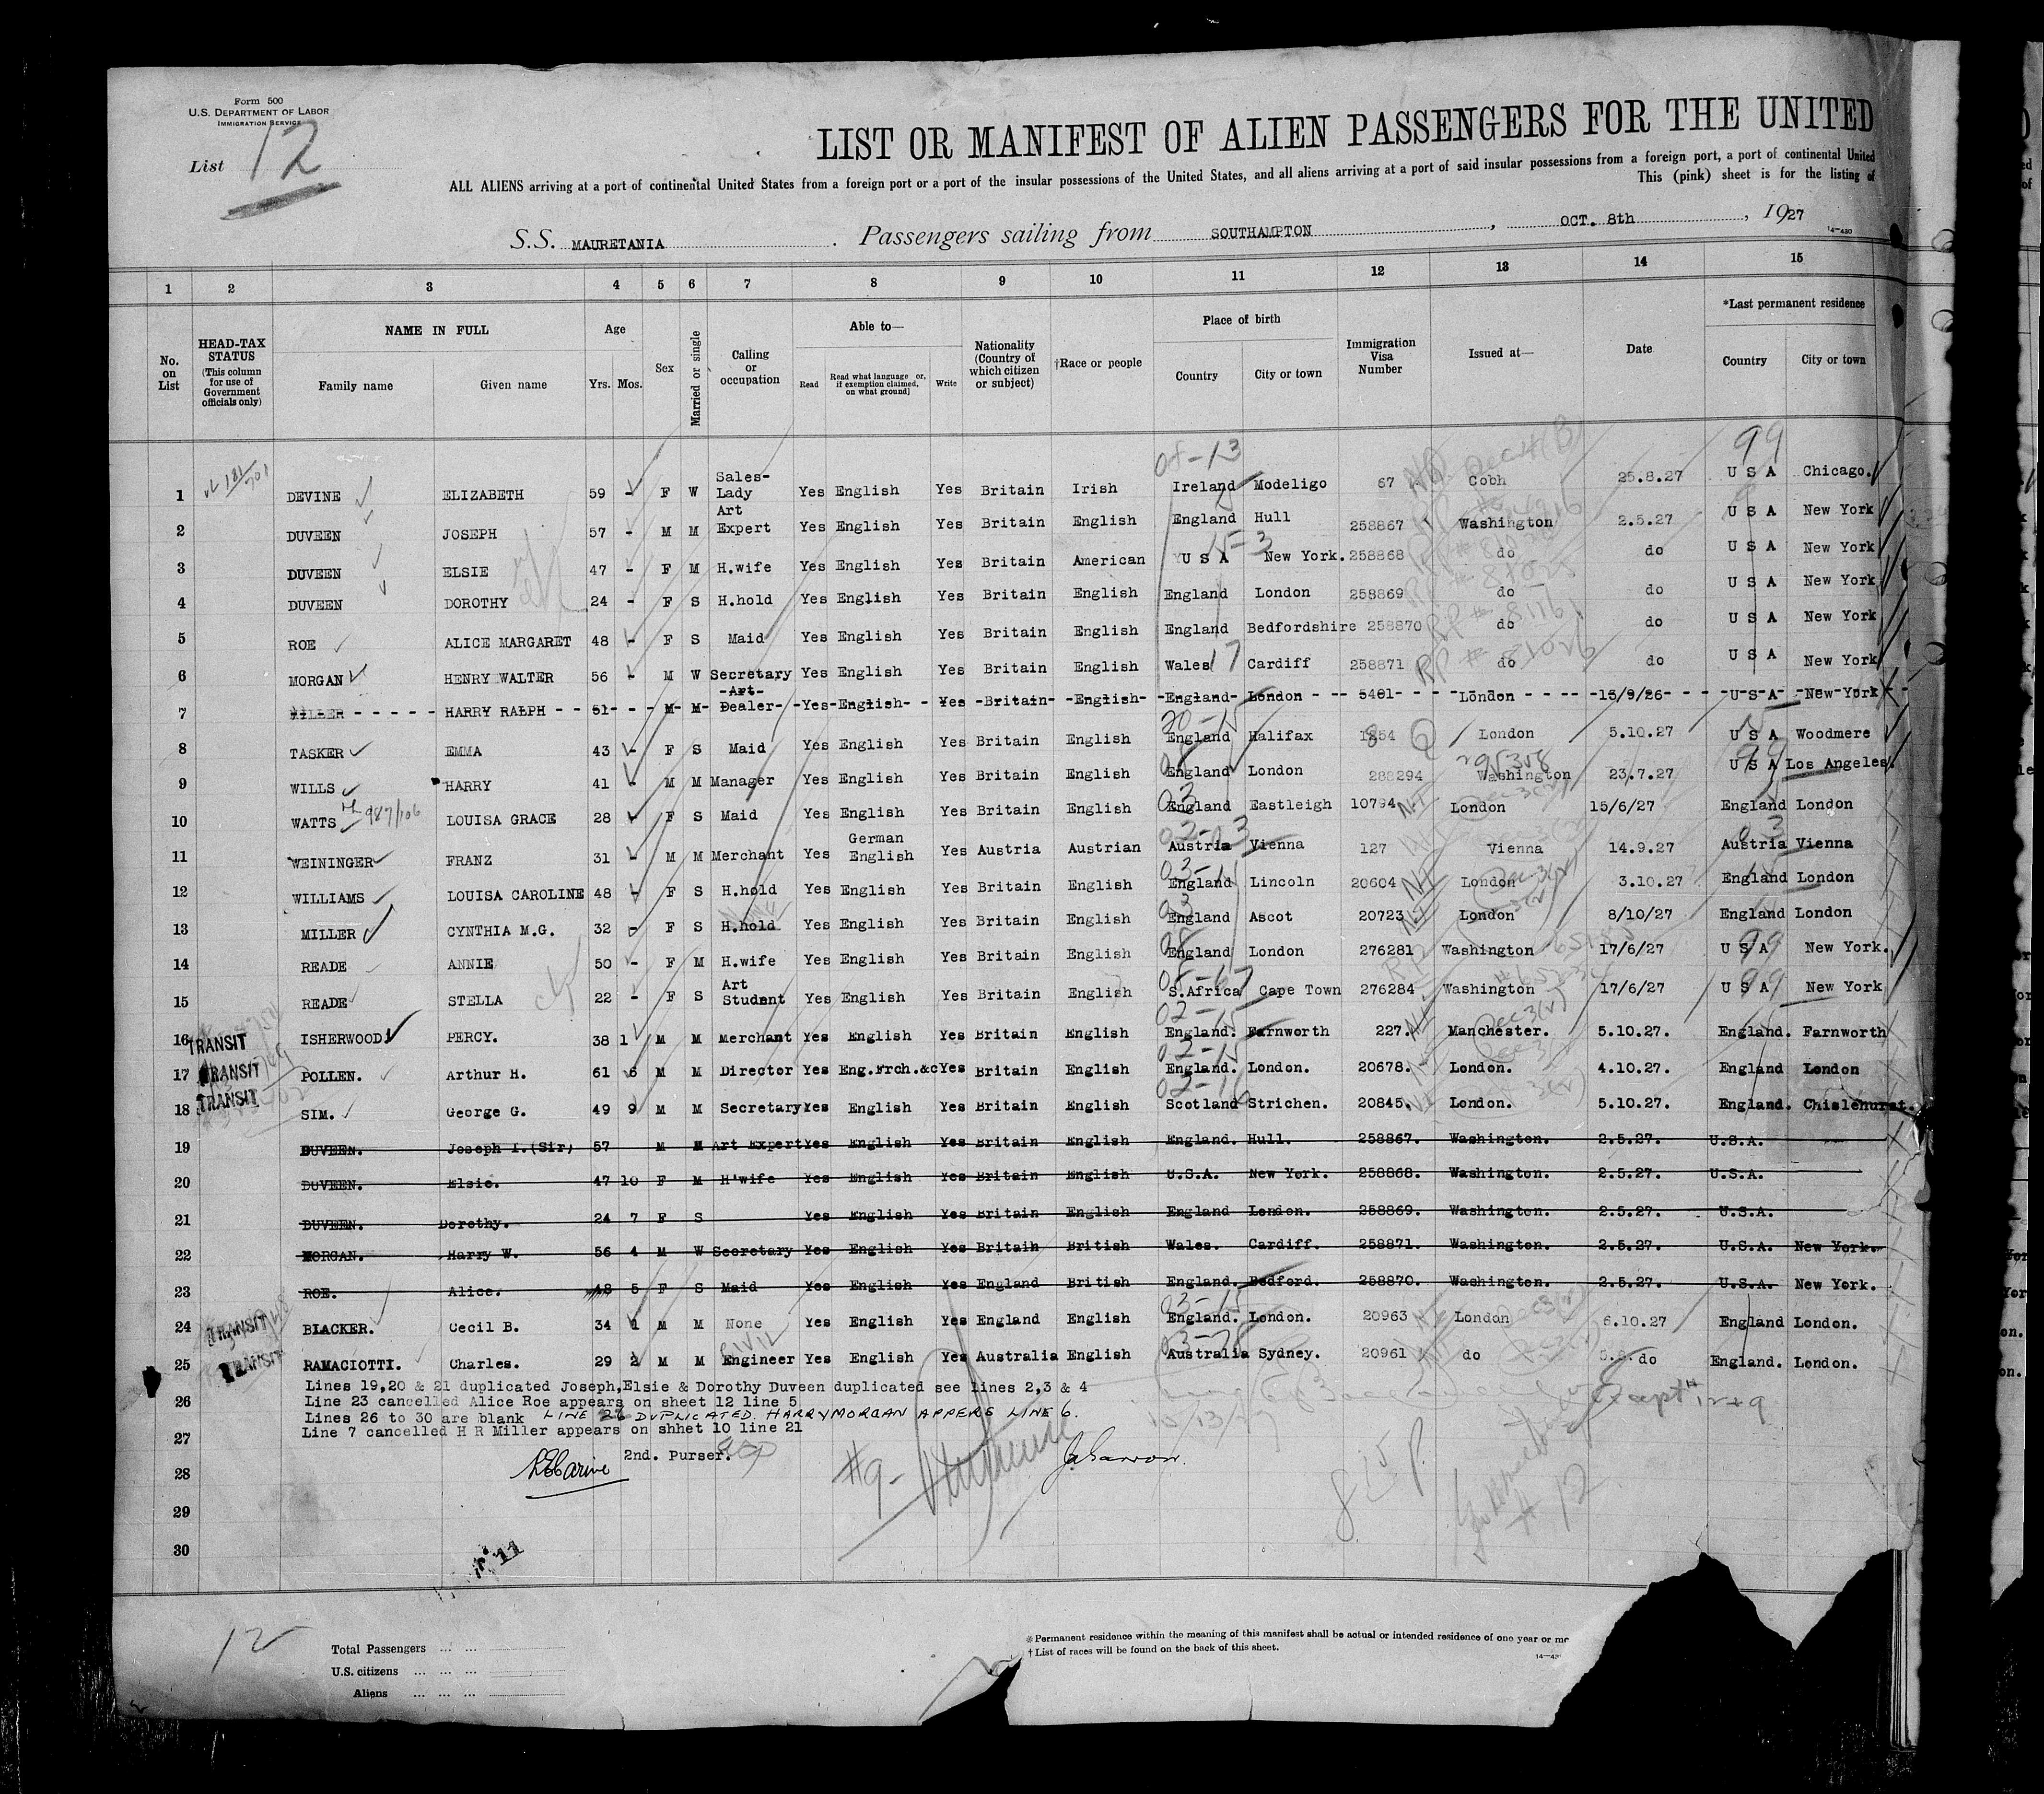 Form 500
U.S. DEPARTMENT OF LABOR
IMMIGRATION SERVICE
List 12
LIST OR MANIFEST OF ALIEN PASSENGERS FOR THE UNITED
ALL ALIENS arriving at a port of continental United States from a foreign port or a port of the insular possessions of the United States, and all aliens arriving at a port of said insular possessions from a foreign port, a port of continental United
This (pink) sheet is for the listing of
S.S. MAURETANIA. Passengers sailing from SOUTHAMPTON, OCT. 8th, 1927
14-430
1 2 3 4 5 6 7 8 9 10 11 12 13 14 15
No. on List
HEAD-TAX STATUS (This column for use of Government officials only)
NAME IN FULL
Family name Given name
Age
Yrs. Mos.
Sex
Married or single
Calling or occupation
Able to—
Read Read what language or, if exemption claimed, on what ground] Write
Nationality (Country of which citizen or subject)
†Race or people
Place of birth
Country City or town
Immigration Visa Number
Issued at—
Date
*Last permanent residence
Country City or town
1 DEVINE ELIZABETH 59 - F W Sales-Lady Yes English Yes Britain Irish Ireland Modeligo 67 Cobh 25.8.27 U S A Chicago.
2 DUVEEN JOSEPH 57 - M M Art Expert Yes English Yes Britain English England Hull 258867 Washington 2.5.27 U S A New York
3 DUVEEN ELSIE 47 - F M H.wife Yes English Yes Britain American U S A New York. 258868 do do U S A New York
4 DUVEEN DOROTHY 24 - F S H.hold Yes English Yes Britain English England London 258869 do do U S A New York
5 ROE ALICE MARGARET 48 - F S Maid Yes English Yes Britain English England Bedfordshire 258870 do do U S A New York
6 MORGAN HENRY WALTER 56 - M W Secretary Yes English Yes Britain English Wales Cardiff 258871 do do U S A New York
7 MILLER HARRY RALPH 51 - M M -Art- Dealer- Yes English Yes Britain English England London 5401 London 15/9/26 U S A New York
8 TASKER EMMA 43 - F S Maid Yes English Yes Britain English England Halifax 1854 London 5.10.27 U S A Woodmere
9 WILLS HARRY 41 - M M Manager Yes English Yes Britain English England London 288294 Washington 23.7.27 U S A Los Angeles.
10 WATTS 987/106 LOUISA GRACE 28 - F S Maid Yes English Yes Britain English England Eastleigh 10794 London 15/6/27 England London
11 WEININGER FRANZ 31 - M M Merchant Yes German English Yes Austria Austrian Austria Vienna 127 Vienna 14.9.27 Austria Vienna
12 WILLIAMS LOUISA CAROLINE 48 - F S H.hold Yes English Yes Britain English England Lincoln 20604 London 3.10.27 England London
13 MILLER CYNTHIA M.G. 32 - F S H.hold Yes English Yes Britain English England Ascot 20723 London 8/10/27 England London
14 READE ANNIE 50 - F M H.wife Yes English Yes Britain English England London 276281 Washington 17/6/27 U S A New York.
15 READE STELLA 22 - F S Art Student Yes English Yes Britain English S.Africa Cape Town 276284 Washington 17/6/27 U S A New York
16 TRANSIT ISHERWOOD PERCY. 38 1 M M Merchant Yes English Yes Britain English England. Farnworth 227. Manchester. 5.10.27. England. Farnworth
17 TRANSIT POLLEN. Arthur H. 61 6 M M Director Yes Eng.Frch.&c Yes Britain English England. London. 20678. London. 4.10.27. England London
18 TRANSIT SIM. George G. 49 9 M M Secretary Yes English Yes Britain English Scotland Strichen. 20845. London. 5.10.27. England. Chislehurst.
19 DUVEEN. Joseph I.(Sir) 57 M M Art Expert Yes English Yes Britain English England. Hull. 258867. Washington. 2.5.27. U.S.A.
20 DUVEEN. Elsie. 47 10 F M H'wife Yes English Yes Britain English U.S.A. New York. 258868. Washington. 2.5.27. U.S.A.
21 DUVEEN. Dorothy. 24 7 F S Yes English Yes Britain English England London. 258869. Washington. 2.5.27. U.S.A.
22 MORGAN. Harry W. 56 4 M W Secretary Yes English Yes Britain British Wales. Cardiff. 258871. Washington. 2.5.27. U.S.A. New York.
23 ROE. Alice. 48 5 F S Maid Yes English Yes England British England. Bedford. 258870. Washington. 2.5.27. U.S.A. New York.
24 TRANSIT BLACKER. Cecil B. 34 1 M M None Yes English Yes England English England. London. 20963 London 6.10.27 England London.
25 TRANSIT RAMACIOTTI. Charles. 29 2 M M CIVIL Engineer Yes English Yes Australia English Australia Sydney. 20961 do do England. London.
Lines 19,20 & 21 duplicated Joseph,Elsie & Dorothy Duveen duplicated see lines 2,3 & 4
26 Line 23 cancelled Alice Roe appears on sheet 12 line 5
Lines 26 to 30 are blank LINE 22 DUPLICATED. HARRY MORGAN APPERS LINE 6.
27 Line 7 cancelled H R Miller appears on shhet 10 line 21
2nd. Purser.
28
29
30
12
Total Passengers
U.S. citizens
Aliens
*Permanent residence within the meaning of this manifest shall be actual or intended residence of one year or mo
†List of races will be found on the back of this sheet.